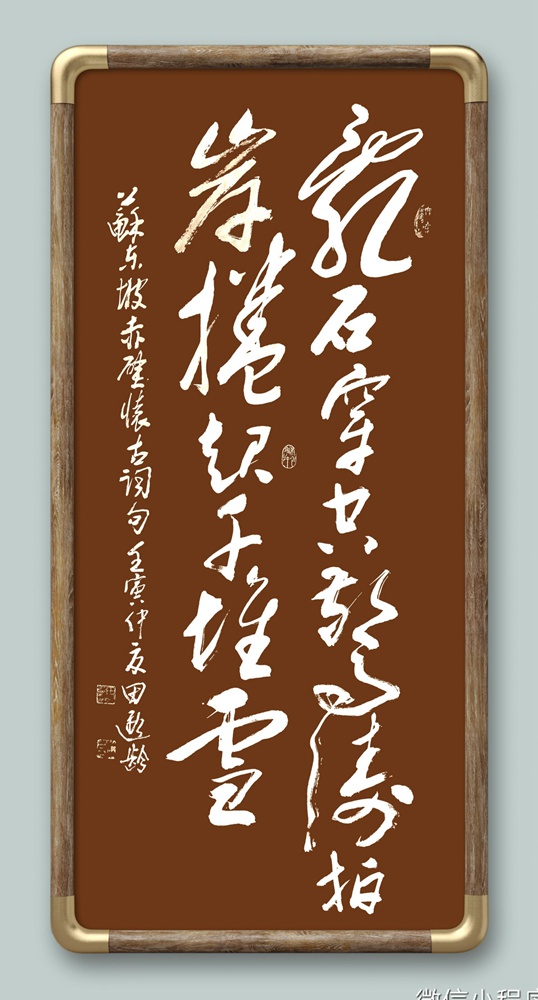 亂石穿空驚濤拍
岸捲起千堆雪
蘇东坡赤壁懷古词句壬寅仲夏田遐齡
微信小程序